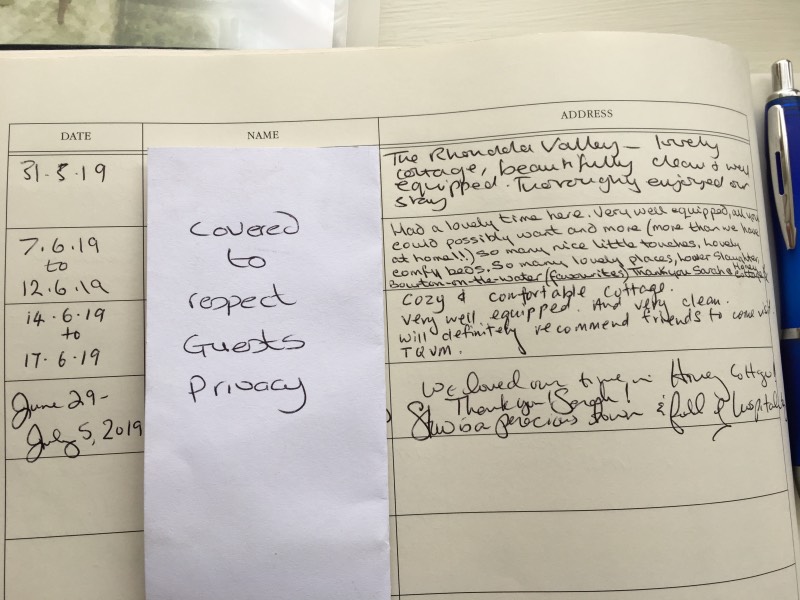 DATE
NAME
ADDRESS
31.5.19
The Rhondda Valley - lovely
cottage, beautifully clean & well
equipped. Thoroughly enjoyed our
stay
7.6.19
to
12.6.19
Had a lovely time here. Very well equipped, all you
could possibly want and more (more than we have
at home!!) so many nice little touches, lovely
comfy beds. So many lovely places, Lower Slaughter,
Bourton-on-the-Water (favourites) Thankyou Sarah
14.6.19
to
17.6.19
Cozy & comfortable cottage.
Very well equipped. And very clean.
will definitely recommend friends to come visit
TQVM.
June 29-
July 5, 2019
We loved our time in Honey Cottage!
Thank you Sarah!
Stow is a precious town & full of hospitality
Covered
to
respect
Guests
Privacy